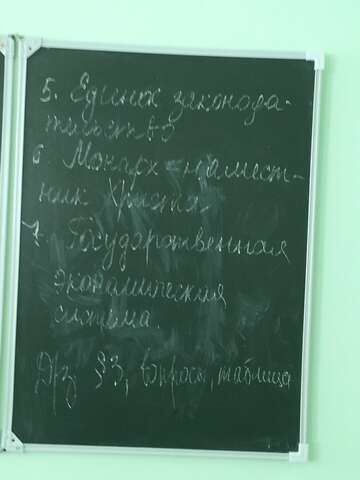 5. Единое законода-
тельство
6. Монарх - намест-
ник Христа
7. Государственная
экономическая
система.
Д/з §3, вопросы, таблица